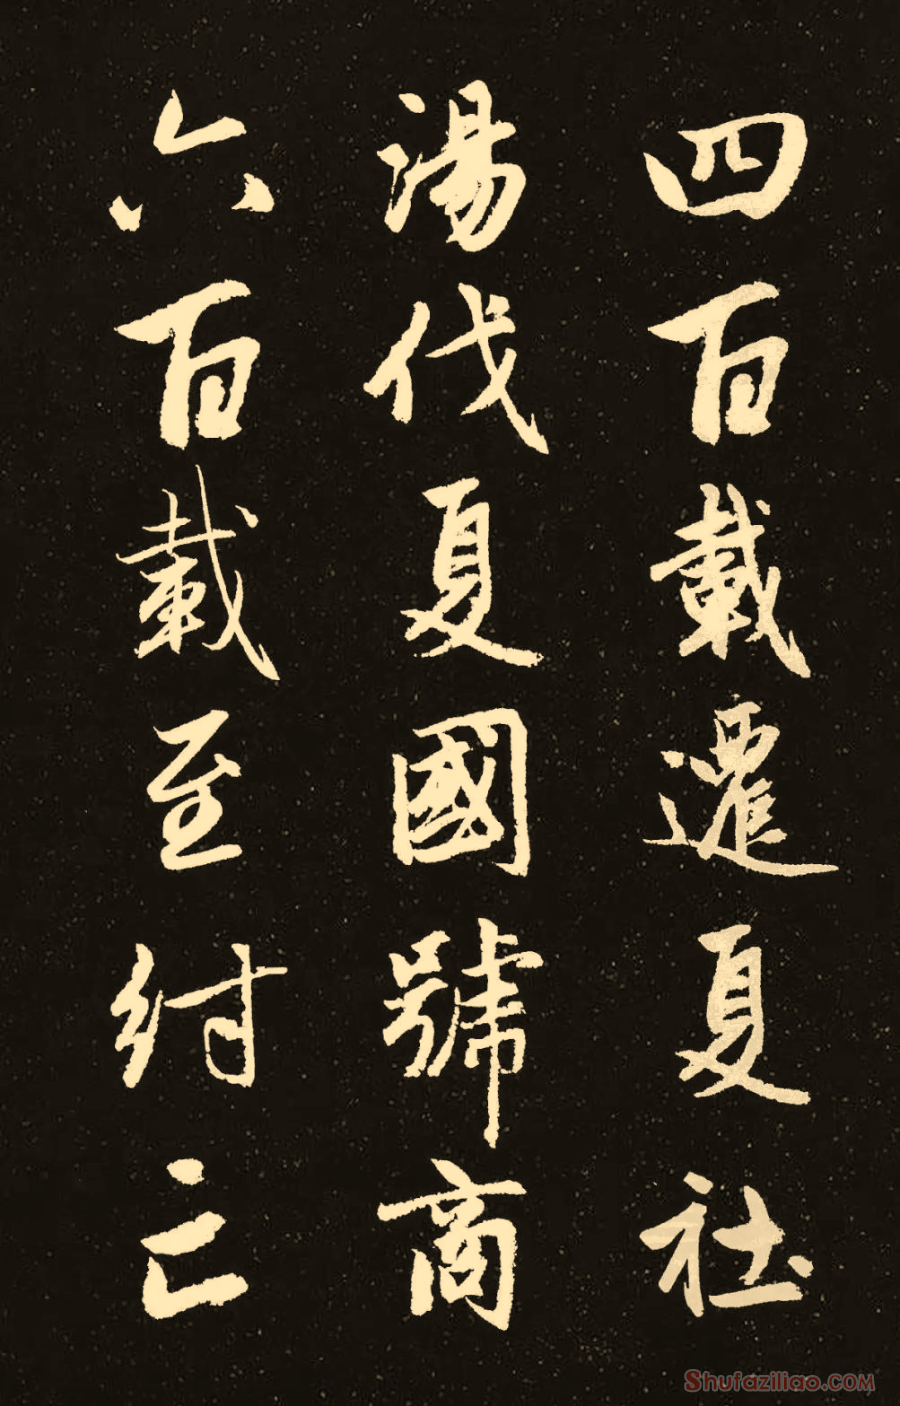 四百載遷夏社
湯伐夏國號商
六百載至紂亡
Shufaziliao.com